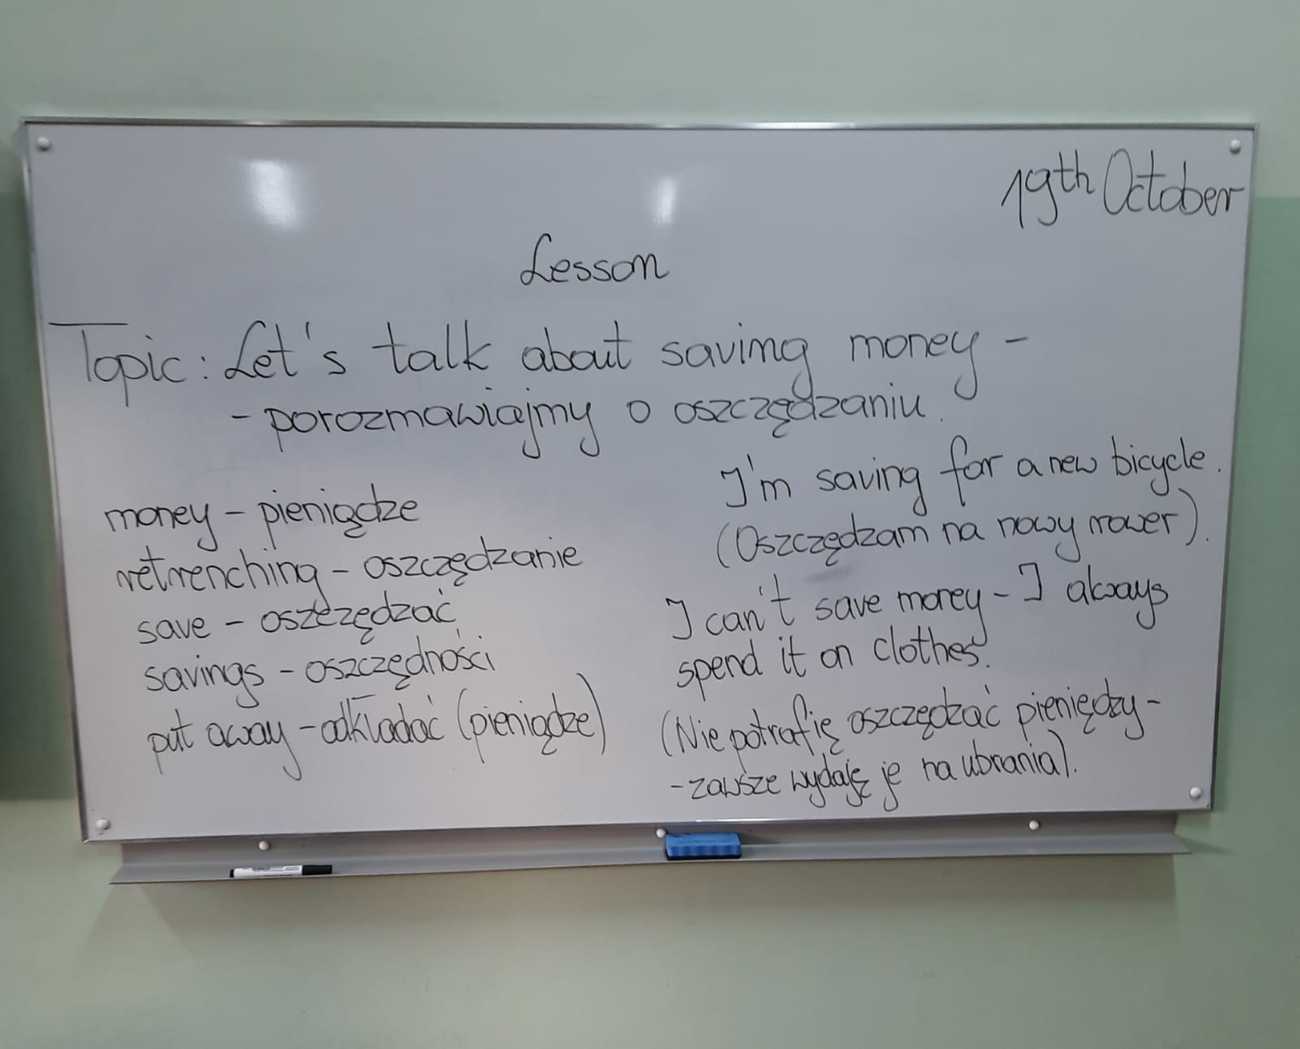 19th October
Lesson
Topic: Let's talk about saving money -
- porozmawiajmy o oszczędzaniu.
money - pieniądze
retrenching - oszczędzanie
save - oszczędzać
savings - oszczędności
put away - odkładać (pieniądze)
I'm saving for a new bicycle.
(Oszczędzam na nowy rower).
I can't save money - I always
spend it on clothes.
(Nie potrafię oszczędzać pieniędzy -
- zawsze wydaję je na ubrania).